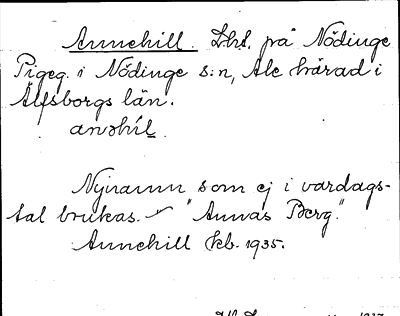 Annehill. Lht. på Nödinge
Prgeg. i Nödinge s:n, Ale härad i
Älfsborgs län.
anəhíl.
Nynamn som ej i vardags-
tal brukas. "Annas Berg."
Annehill kb. 1935.